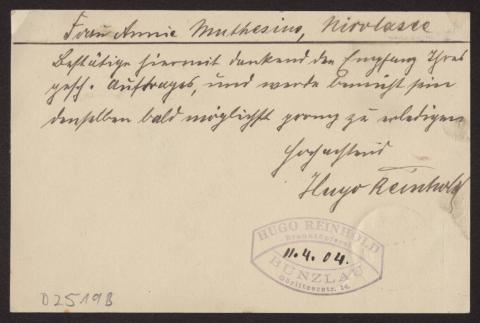 Frau Annie Muthesius, Nicolassee
Bestätige hiermit dankend den Empfang Ihres
gesch. Auftrages, und werde bemüht sein
denselben bald möglichst prompt zu erledigen
Hochachtend
Hugo Reinhold
HUGO REINHOLD
Brauntöpferei
11.4.04.
BUNZLAU
Görlitzerstr. 14.
D2519B